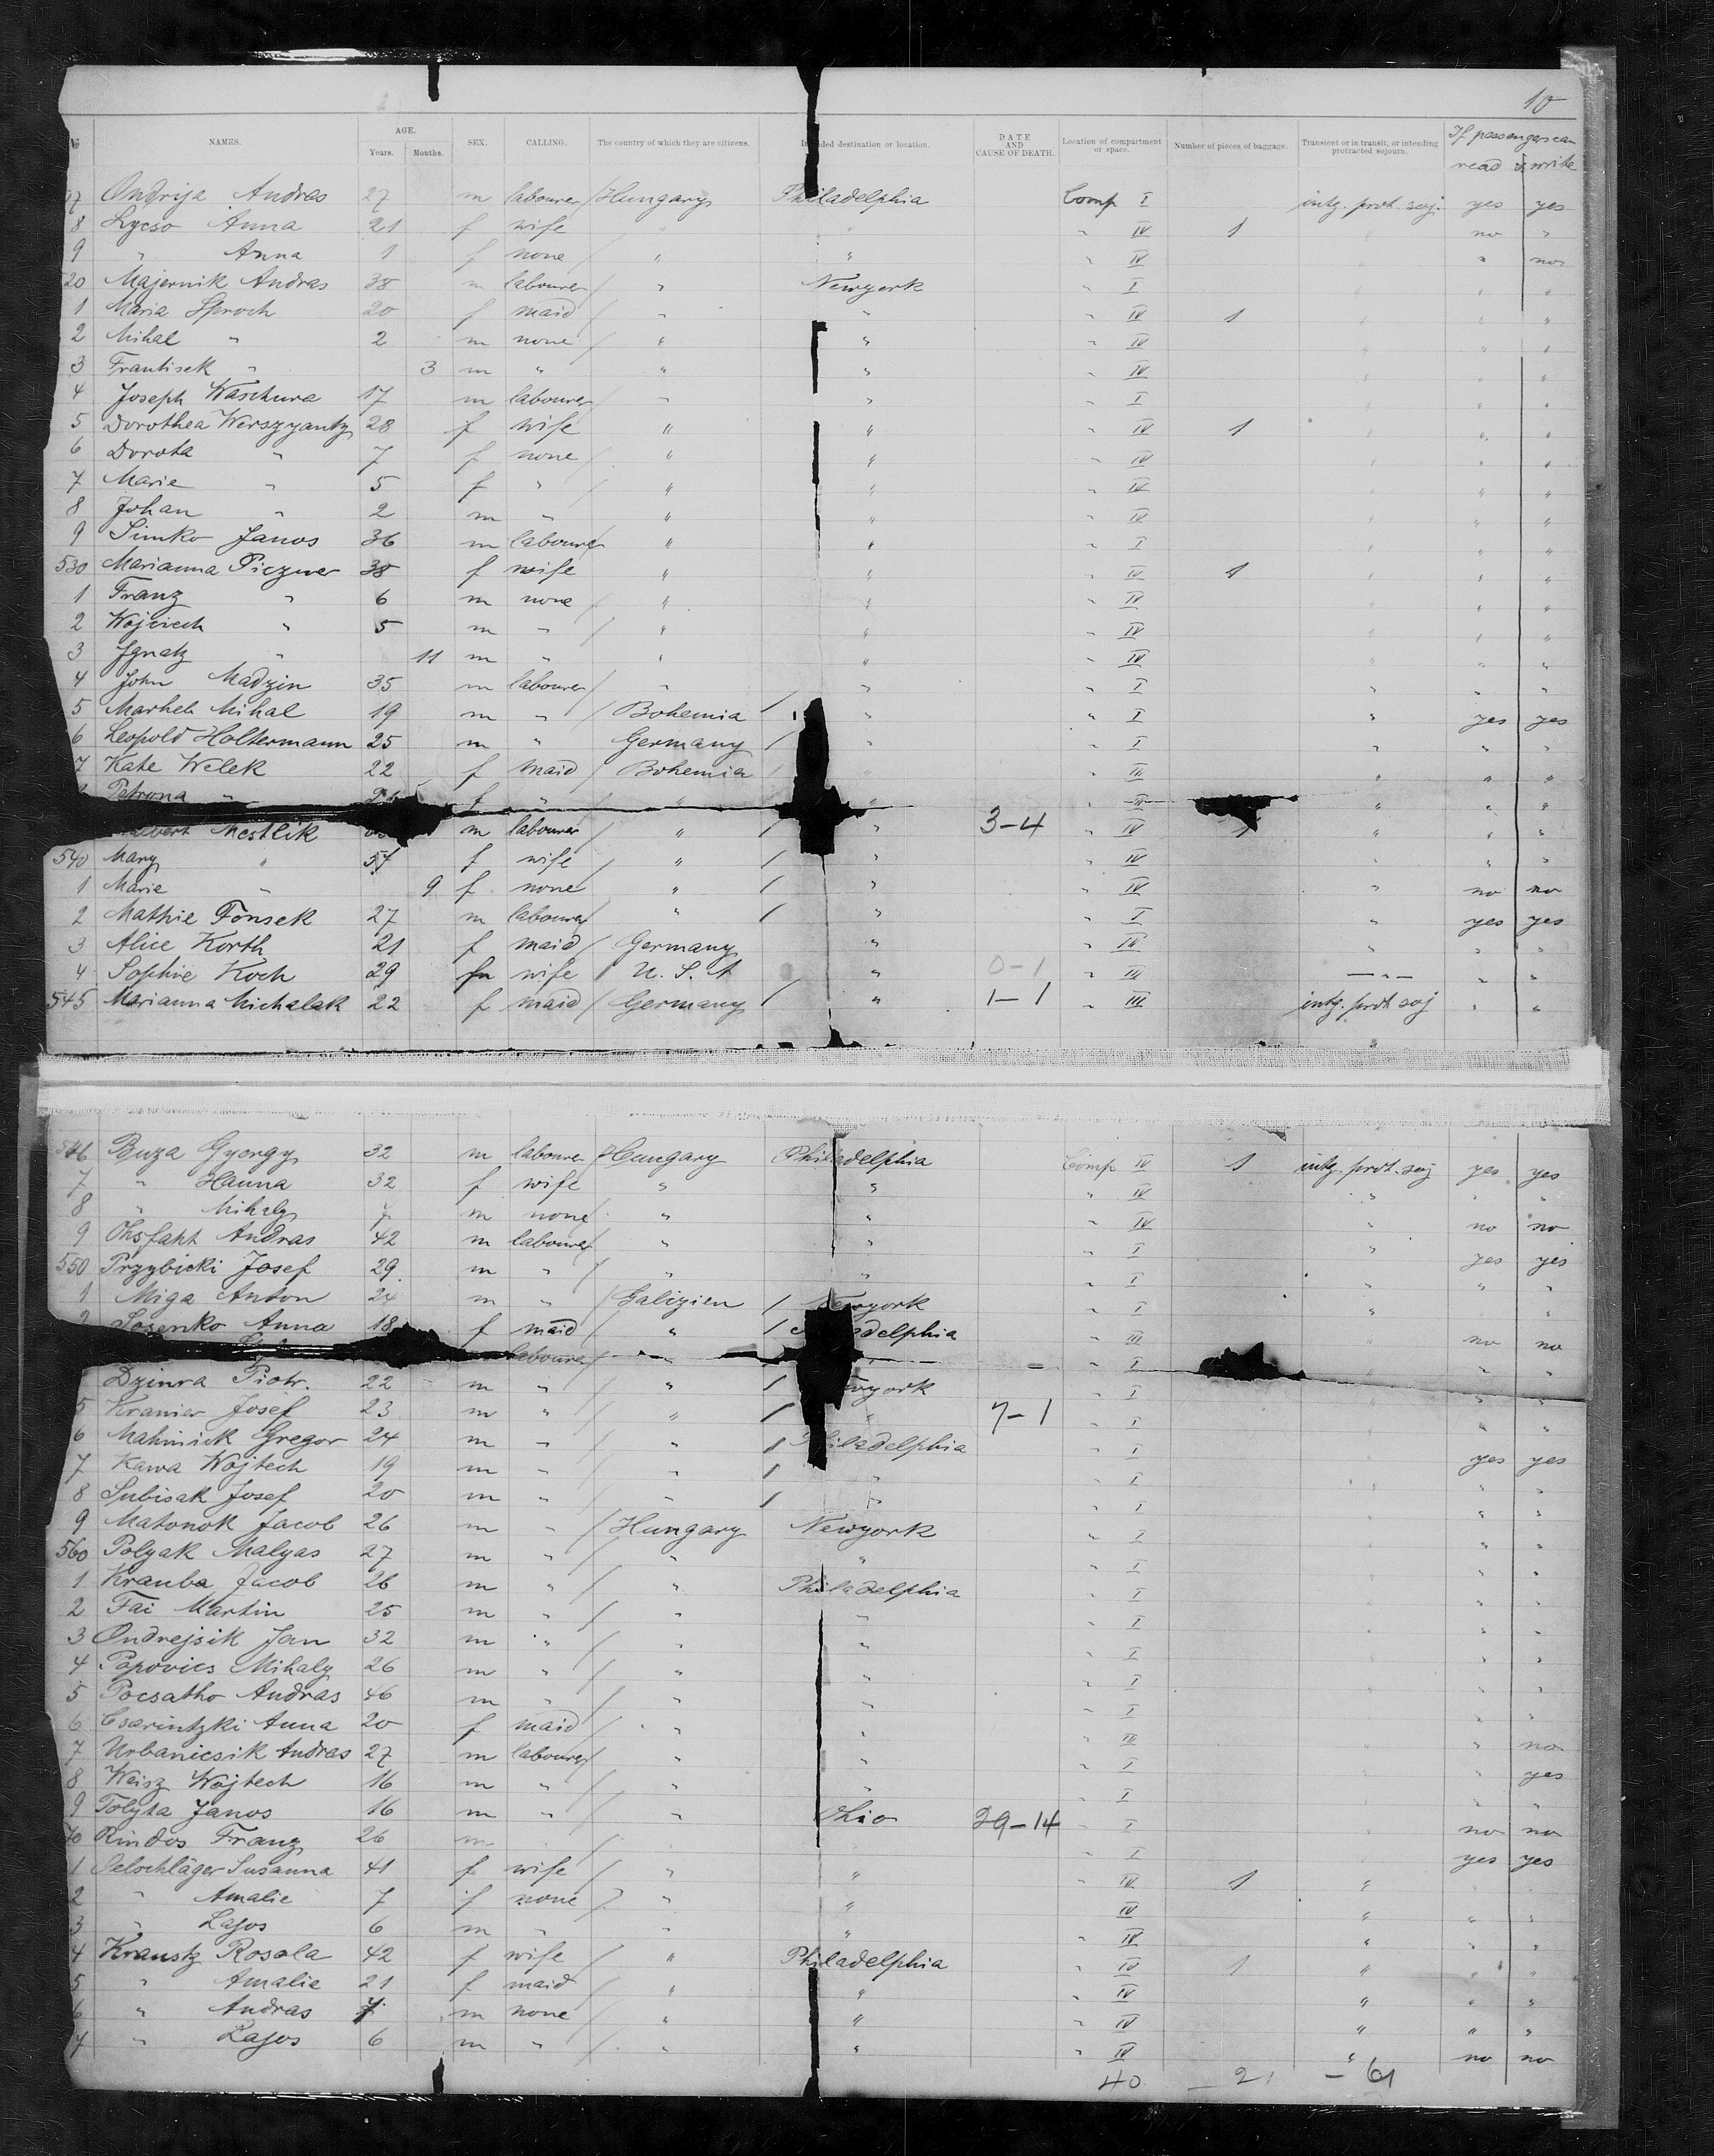 10
№ NAMES. AGE. Years. Months. SEX. CALLING. The country of which they are citizens. Intended destination or location. DATE AND CAUSE OF DEATH. Location of compartment or space. Number of pieces of baggage. Transient or in transit, or intending protracted sojourn. If passengers can read & write
17 Ondrija Andras 27 m labourer Hungary Philadelphia Comp I intg. prot. soj. yes yes
8 Lycso Anna 21 f wife " " " IV 1 " no "
9 " Anna 1 f none " " " IV " " no
520 Majernik Andras 38 m labourer " Newyork " I " " "
1 Maria Sproch 20 f maid " " " IV 1 " " "
2 Mihal " 2 m none " " " IV " " "
3 Frantisek " 3 m " " " " IV " " "
4 Joseph Waschura 17 m labourer " " " I " " "
5 Dorothea Werszyantz 28 f wife " " " IV 1 " " "
6 Dorota " 7 f none " " " IV " " "
7 Marie " 5 f " " " " IV " " "
8 Johan " 2 m " " " " IV " " "
9 Simko Janos 36 m labourer " " " I " " "
530 Marianna Piezner 38 f wife " " " IV 1 " " "
1 Franz " 6 m none " " " IV " " "
2 Wojciech " 5 m " " " " IV " " "
3 Ignatz " 11 m " " " " IV " " "
4 John Madzin 35 m labourer " " " I " " "
5 Marheh Mihal 19 m " Bohemia " " I " yes yes
6 Leopold Holtermann 25 m " Germany " " I " " "
7 Kate Welek 22 f maid Bohemia " " III " " "
Petrona " f " " " " III " " "
Mestlik m labourer " " 3-4 " IV " " "
540 Mary " 57 f wife " " " IV " " "
1 Marie " 9 f none " " " IV " no no
2 Mathie Fonsek 27 m labourer " " " I " yes yes
3 Alice Korth 21 f maid Germany " " IV " " "
4 Sophie Koch 29 f wife U. S. A " 0-1 " III -"- " "
545 Marianna Michalak 22 f maid Germany " 1-1 " III intg. prot soj " "
546 Buza Gyorgy 32 m labourer Hungary Philadelphia Comp IV 1 intg. prot. soj yes yes
7 " Hanna 32 f wife " " " IV " " "
8 " Mihaly 7 m none " " " IV " no no
9 Ohsfaht Andras 42 m labourer " " " I " yes yes
550 Przybicki Josef 29 m " " " " I " " "
1 Miga Anton 24 m " Galizien Newyork " I " " "
2 Sosenko Anna 18 f maid " Philadelphia " III " no no
labourer " " " I " " "
Dzinra Piotr. 22 m " " Newyork " I " " "
5 Kranier Josef 23 m " " " 7-1 " I " " "
6 Mahinick Gregor 24 m " " Philadelphia " I " yes yes
7 Kawa Wojtech 19 m " " " " I " " "
8 Subisak Josef 20 m " " " " I " " "
9 Matonok Jacob 26 m " Hungary Newyork " I " " "
560 Polyak Malyas 27 m " " " " I " " "
1 Krauba Jacob 26 m " " Philadelphia " I " " "
2 Fai Martin 25 m " " " " I " " "
3 Ondrejsik Jan 32 m " " " " I " " "
4 Popovics Mihaly 26 m " " " " I " " "
5 Pocsatho Andras 46 m " " " " I " " "
6 Csarintzki Anna 20 f maid " " " III " " no
7 Urbanicsik Andras 27 m labourer " " " I " " yes
8 Weisz Wojtech 16 m " " " " I " " "
9 Tolyta Janos 16 m " " Ohio 29-14 " I " no no
70 Rindos Franz 26 m " " " I " yes yes
1 Oelschläger Susanna 41 f wife " " " IV 1 " " "
2 " Amalie 7 f none " " IV " " "
3 " Lajos 6 m " " " " IV " " "
4 Kraustz Rosala 42 f wife " Philadelphia " IV 1 " " "
5 " Amalie 21 f maid " " " IV " " "
6 " Andras 7 m none " " " IV " " "
7 " Lajos 6 m " " " " IV " no no
40 - 21 - 61